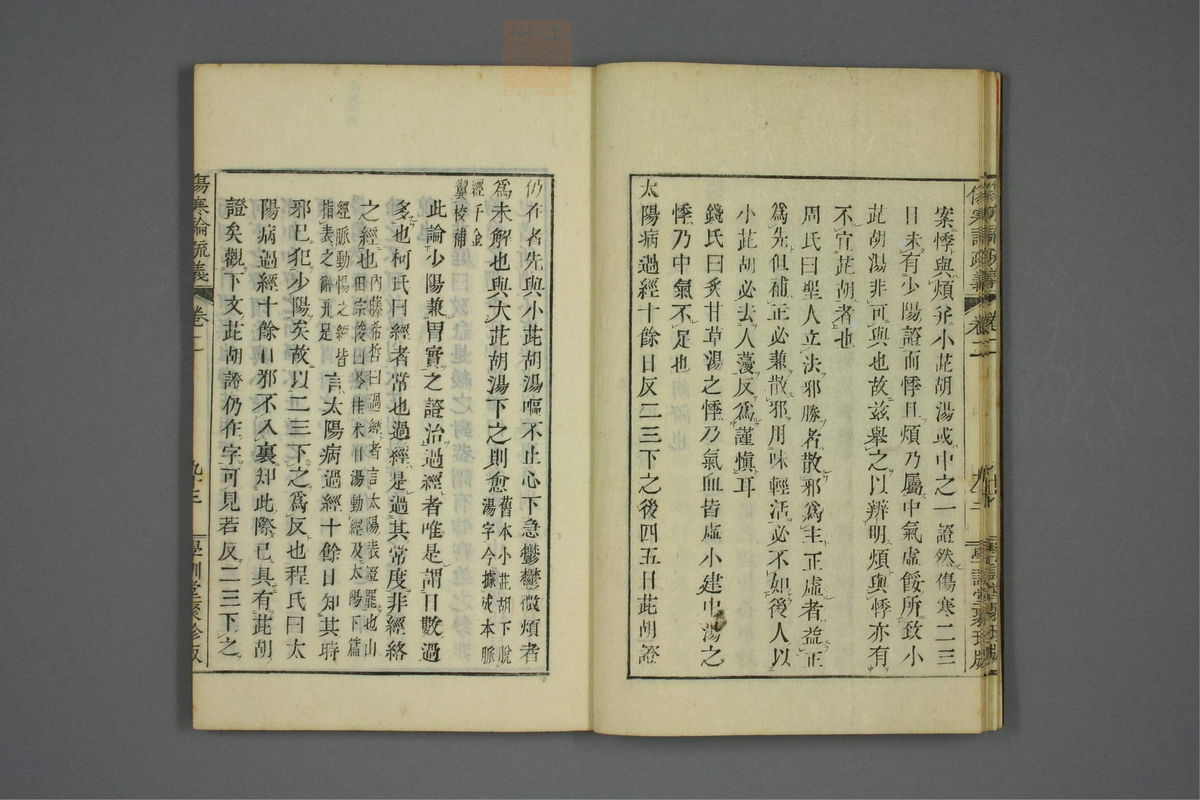 案悸與煩並小茈胡湯或中之一證然傷寒二三
日未有少陽證而悸且煩乃屬中氣虛餒所致小
茈胡湯非可與也故茲舉之以辨明煩與悸亦有
不宜茈胡者也
周氏曰聖人立法邪勝者散邪爲主正虛者益正
爲先但補正必兼散邪用味輕活必不如後人以
小茈胡必去人薓反爲謹愼耳
錢氏曰炙甘草湯之悸乃氣血皆虛小建中湯之
悸乃中氣不足也
太陽病過經十餘日反二三下之後四五日茈胡證
仍在者先與小茈胡湯嘔不止心下急鬱鬱微煩者
爲未解也與大茈胡湯下之則愈舊本小茈胡下脫湯字今據成本脈
經千金翼校補
此論少陽兼胃實之證治過經者唯是謂日數過
多也柯氏曰經者常也過經是過其常度非經絡
之經也內藤希哲曰過經者言太陽表證罷也山田宗俊曰苓桂朮甘湯動經及太陽下篇
經脈動惕之經皆指表之辭非是言太陽病過經十餘日知其時
邪已犯少陽矣故以二三下之爲反也程氏曰太
陽病過經十餘日邪不入裏知此際已具有茈胡
證矣觀下文茈胡證仍在字可見若反二三下之
傷寒論疏義
卷二
九十三
學訓堂聚珍版